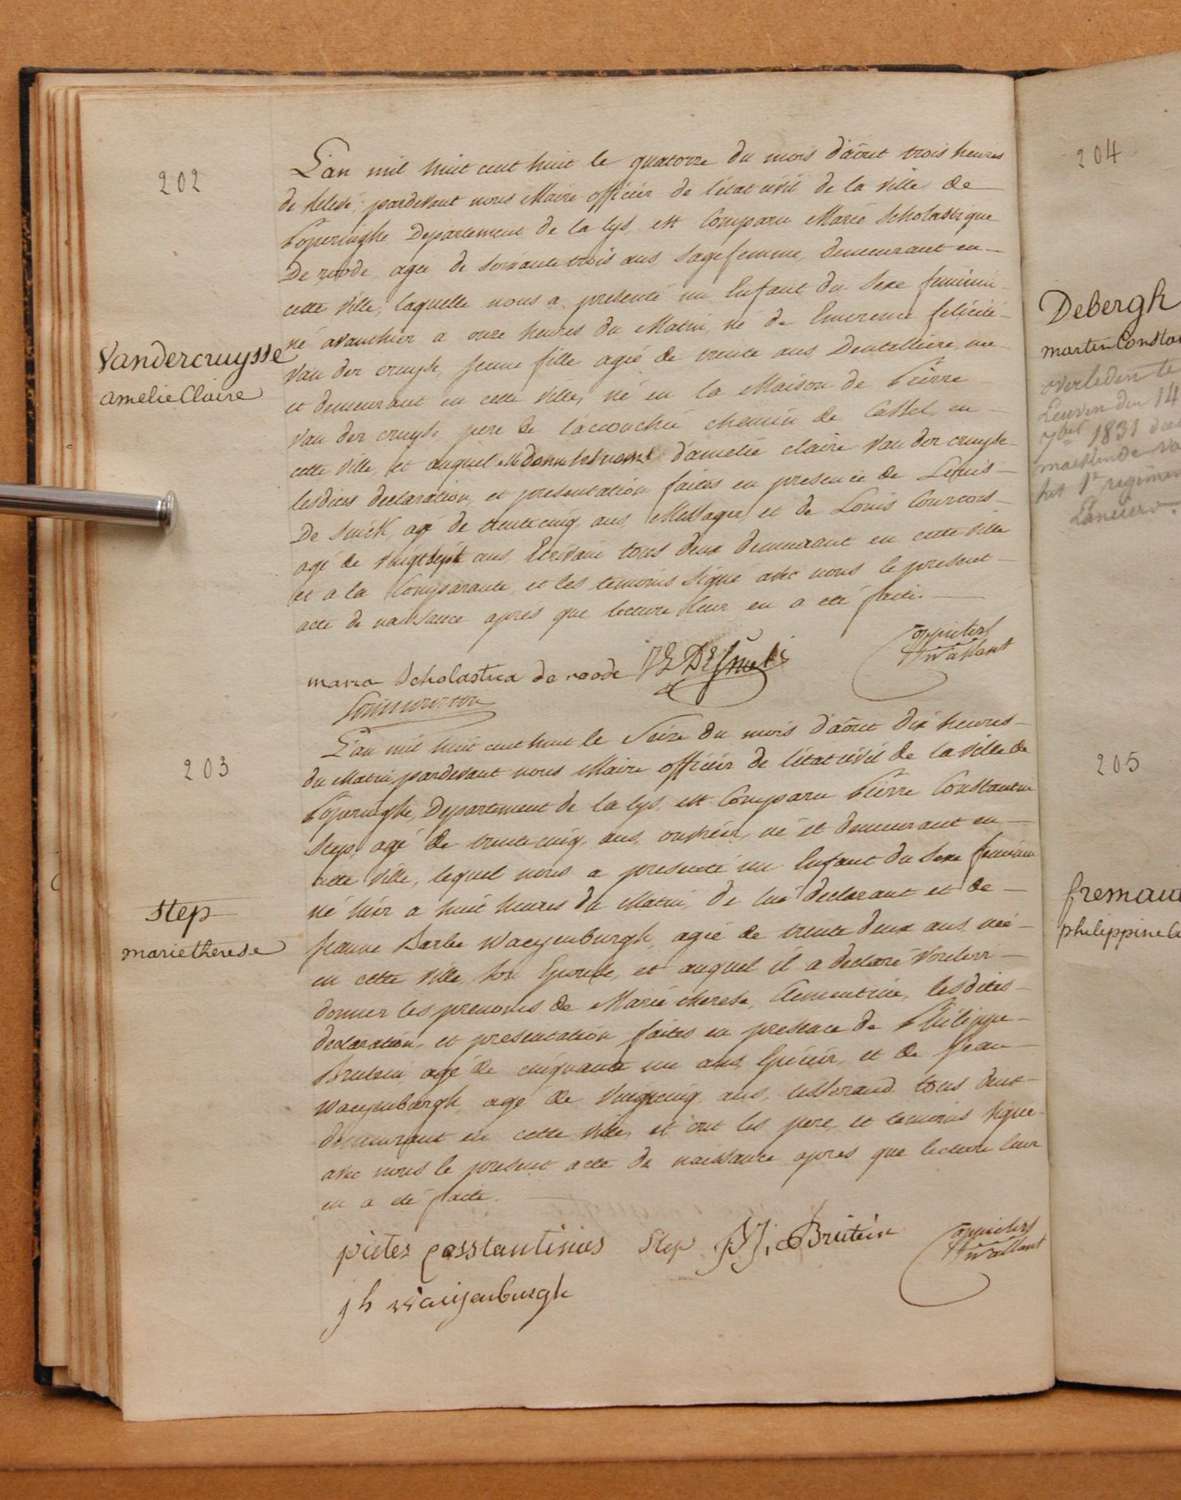 202
Vandercruysse
amelie Claire
L'an mil huit cent huit le quatorze du mois d'août trois heures
de relevé, pardevant nous Maire officier de l'état civil de la ville de
Poperinghe Département de la Lys, est Comparu Marie Scholastique
De roode, agée de soixante trois ans, Sagefemme, demeurant en
cette ville, laquelle nous a presenté un Enfant du Sexe feminin
né avanthier a onze heures du Matin, né de Emerence félicité
Van der cruyse, jeune fille agée de trente ans Dentellière, née
et demeurant en cette ville, né en la Maison de Pierre
Van der cruyse pere de l'accouchée chemin de Cassel en
cette ville, et auquel d'amelie claire Van der cruyse
lesdites declaration, et presentation faites en presence de Louis
De Smick, agé de trente cinq ans Messager, et de Louis Courtois
agé de Vingt sept ans, Ecrivain tous deux demeurant en cette ville
et a la Comparante, et les temoins signé avec nous le present
acte de naissance apres que lecture leur en a été faite.
maria Scholastica de roode
203
Step
marie therese
L'an mil huit cent huit le Seize du mois d'août dix heures
du Matin, pardevant nous Maire officier de l'état civil de la Ville de
Poperinghe, Departement de la Lys, est Comparu Pierre Constantin
Step, agé de trente cinq ans, ouvrier, né et demeurant en
cette ville, lequel nous a presenté un Enfant du Sexe feminin
né hier a huit heures du Matin, de lui declarant et de
Jeanne Barbe Waeyenburgh, agée de trente deux ans, née
en cette ville, son Epouse, et auquel il a declaré Vouloir
donner les prenoms de Marie therese, Clementine, lesdites
declaration, et presentation faites en presence de Philippe
Brutein, agé de cinquante un ans, Epicier, et de Jean
Waeyenburgh, agé de Vingtcinq ans, tisserand tous deux
demeurant en cette ville, et ont les pere, et temoins signé
avec nous le present acte de naissance apres que lecture leur
en a été faite.
pieter Constantinus Step PJ. Brutein
jh waeyenburgh
204
Debergh
martin Constan
overleden te
Leuven den 14
7ber 1831
1e regimen
Lanciers.
205
fremau
philippine